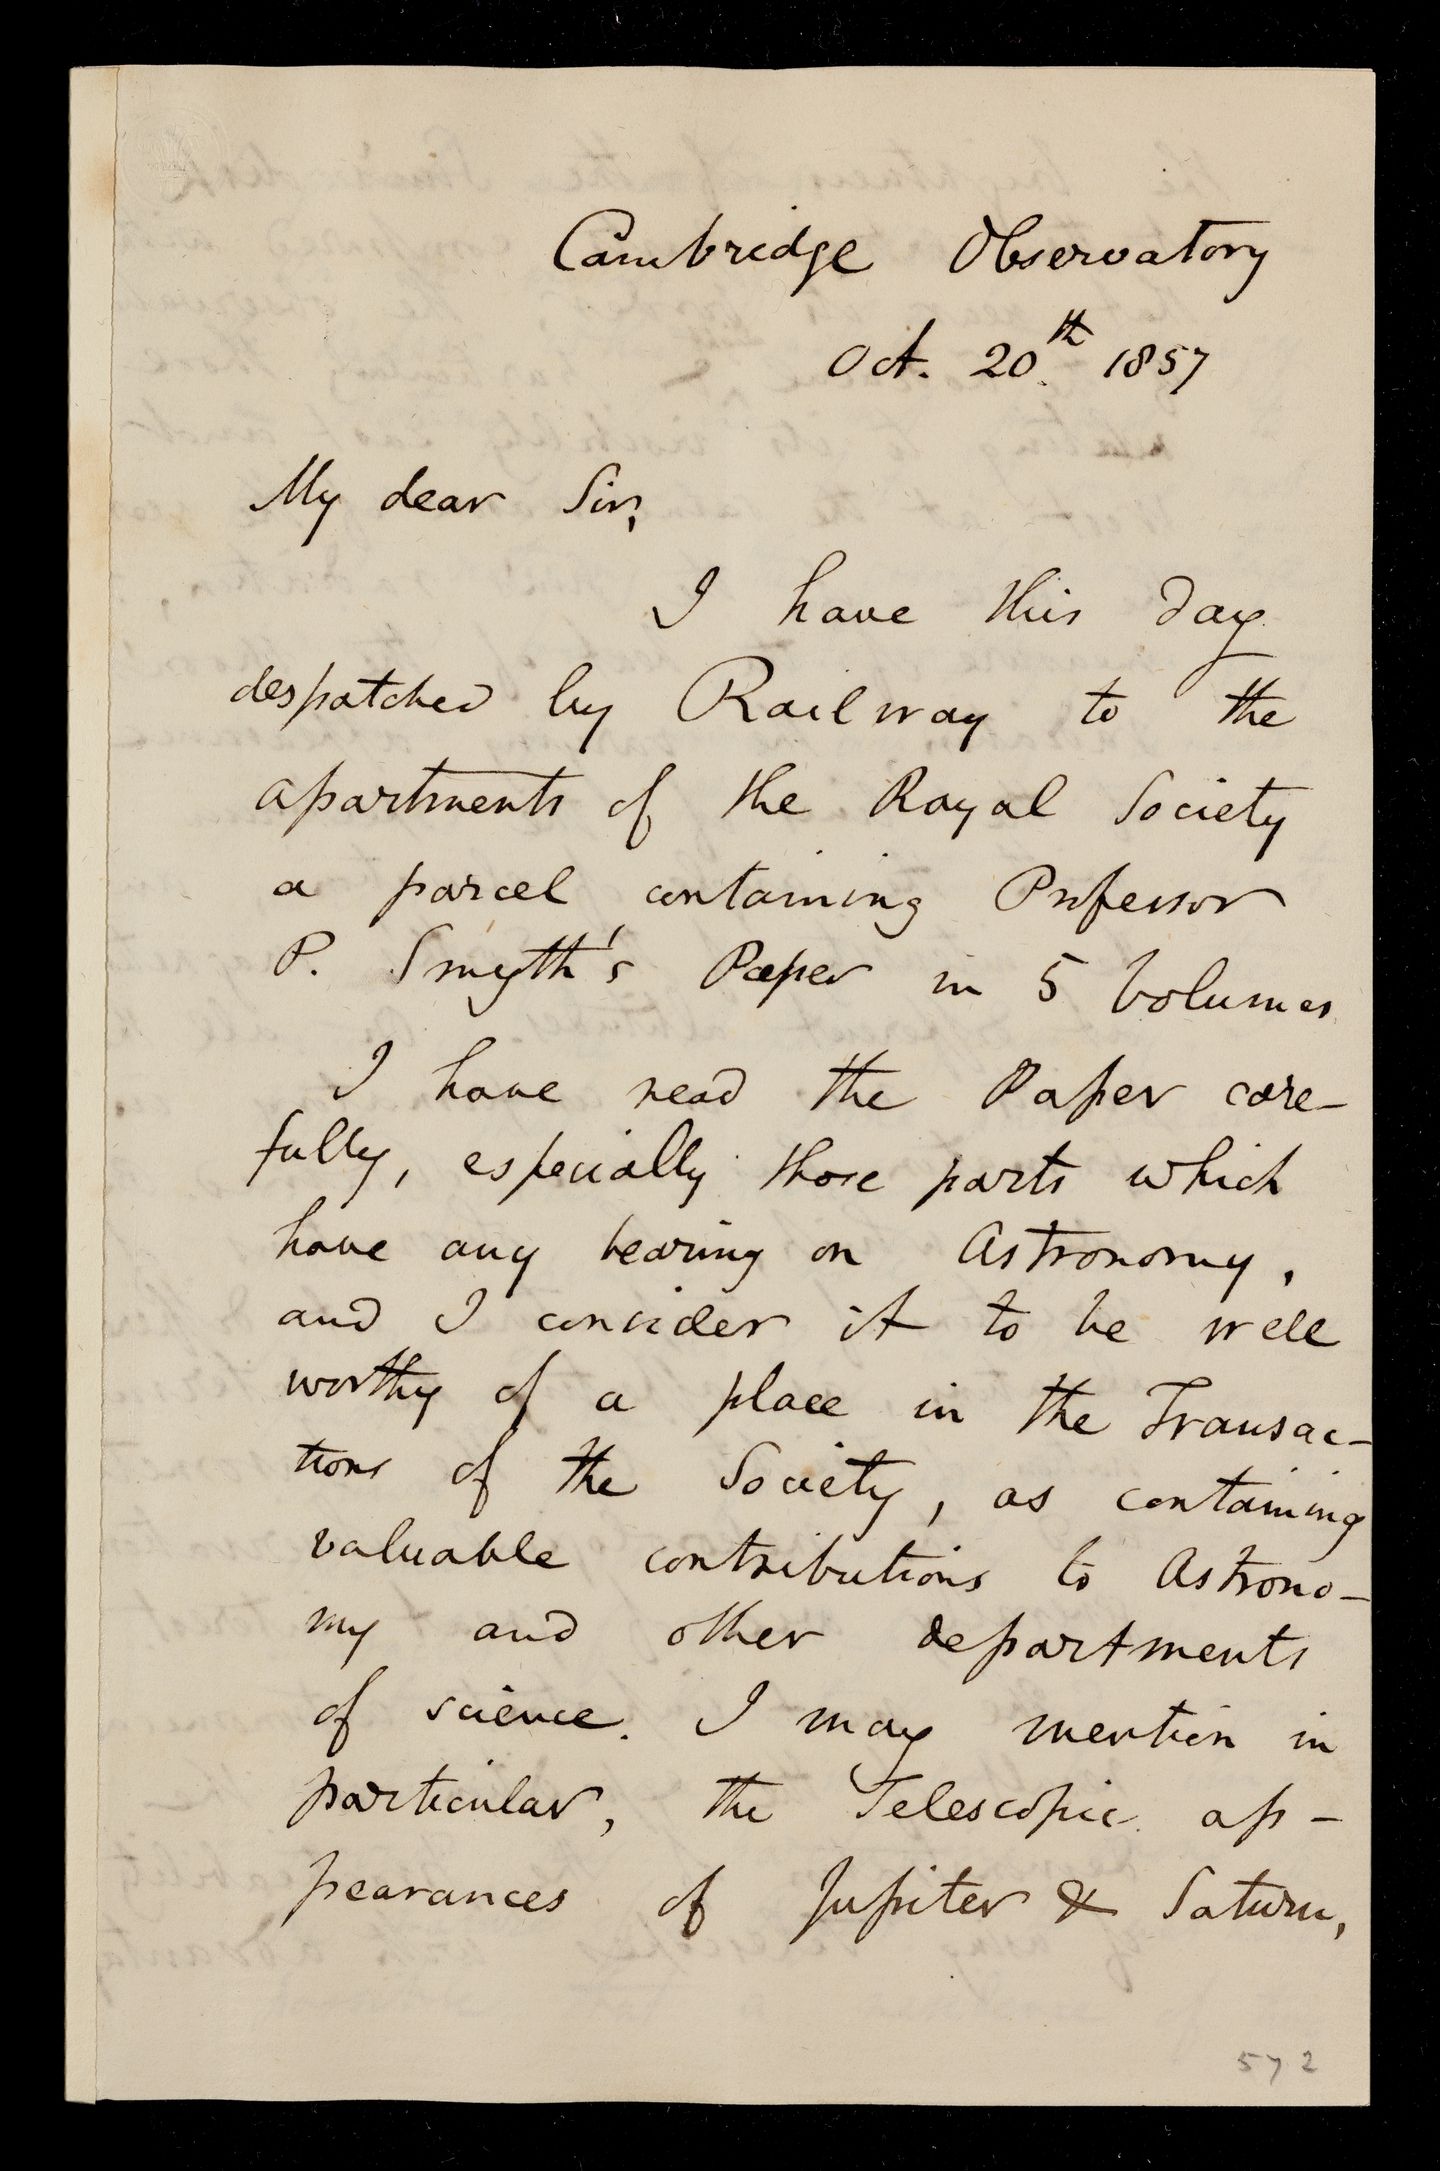 Cambridge Observatory
Oct. 20th 1857
My dear Sir,
I have this day
despatched by Railway to the
apartments of the Royal Society
a parcel containing Professor
P. Smyth's Paper in 5 Volumes
I have read the Paper care-
fully, especially those parts which
have any bearing on Astronomy,
and I consider it to be well
worthy of a place in the Transac-
tions of the Society, as containing
valuable contributions to Astrono-
my and other departments
of science. I may mention in
particular, the Telescopic ap-
pearances of Jupiter & Saturn,
572